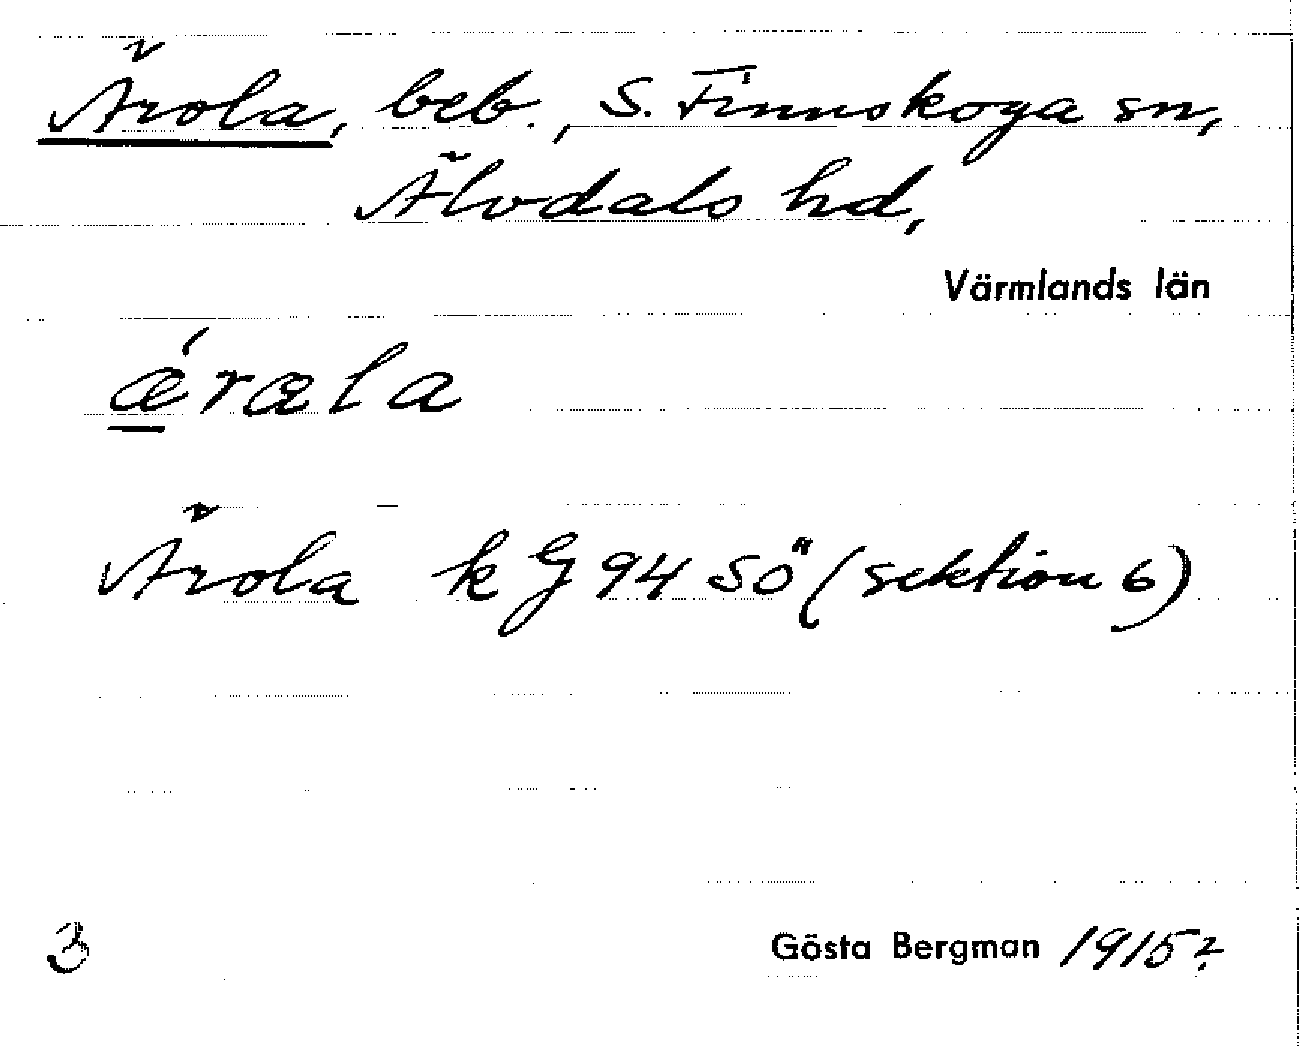 Ärola, beb., S. Finnskoga sn,
Älvdals hd,
Värmlands län
ǽræla
Ärola k G 94 SÖ (sektion 6)
3
Gösta Bergman 1915?